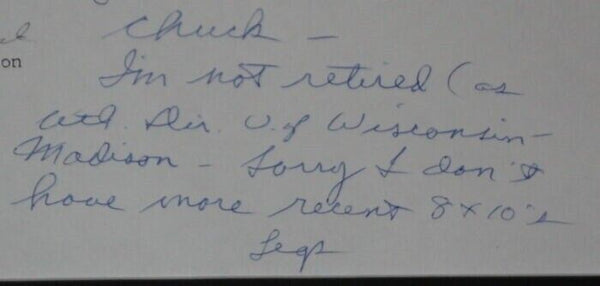 on
Chuck –
I'm not retired (as
Ath. Dir. U. of Wisconsin–
Madison – Sorry I don't
have more recent 8x10's